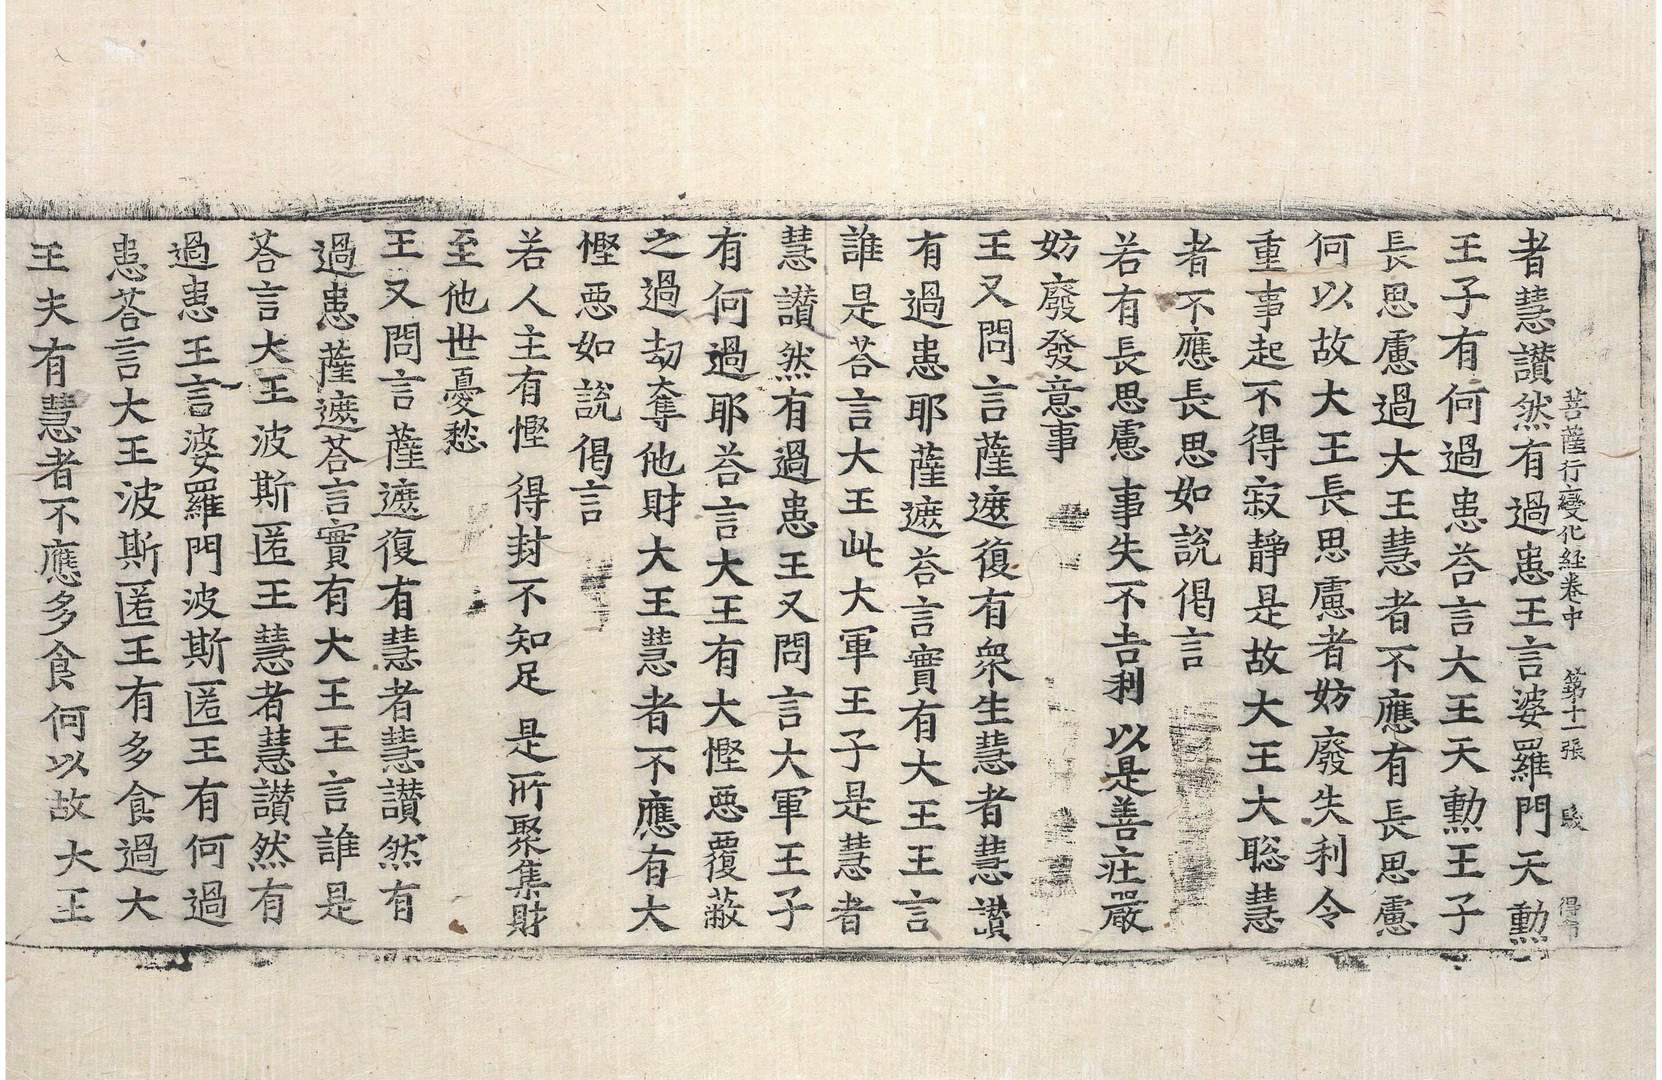 菩薩行變化経卷中 第十一張 賤 得
者慧讃然有過患王言婆羅門天勲
王子有何過患荅言大王天勲王子
長思慮過大王慧者不應有長思慮
何以故大王長思慮者妨廢失利令
重事起不得寂靜是故大王大聡慧
者不應長思如說偈言
若有長思慮 事失不吉利 以是善莊嚴
妨廢發意事
王又問言薩遮復有衆生慧者慧讃
有過患耶薩遮荅言實有大王王言
誰是荅言大王此大軍王子是慧者
慧讃然有過患王又問言大軍王子
有何過耶荅言大王有大慳惡覆蔽
之過劫奪他財大王慧者不應有大
慳惡如說偈言
若人主有慳 得封不知足 是所聚集財
至他世憂愁
王又問言薩遮復有慧者慧讃然有
過患薩遮荅言實有大王王言誰是
荅言大王波斯匿王慧者慧讃然有
過患王言婆羅門波斯匿王有何過
患荅言大王波斯匿王有多食過大
王夫有慧者不應多食何以故大王